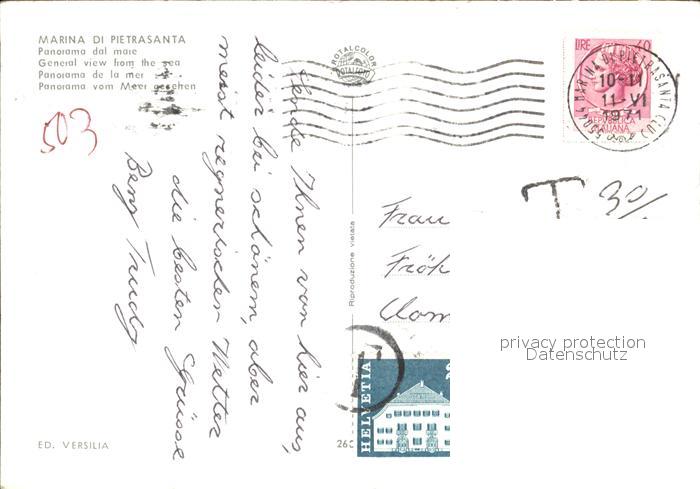 MARINA DI PIETRASANTA
Panorama dal mare
General view from the sea
Panorama de la mer
Panorama vom Meer gesehen
503
ROTALCOLOR
ROTALFOTO
Sende Ihnen von hier aus,
leider bei schönem, aber
meist regnerischen Wetter
die besten Grüsse
Benz Trudy
Riproduzione vietata
LIRE 70
REPUBBLICA
ITALIANA
MARINA DI PIETRASANTA (LU)
10-11
11-VI
1971
T 30/
Frau
Fröh
privacy protection
Datenschutz
HELVETIA
ED. VERSILIA